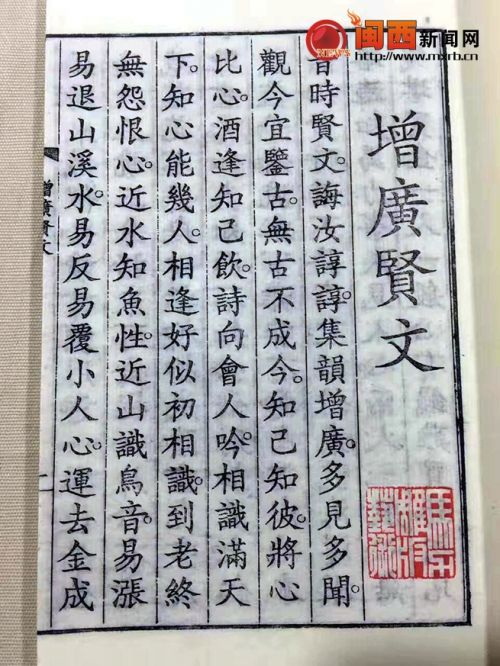 NEWS
闽西新闻网
http://www.mxrb.cn
增廣賢文
昔時賢文。誨汝諄諄。集韻增廣。多見多聞。
觀今宜鑒古。無古不成今。知己知彼。將心
比心。酒逢知己飲。詩向會人吟。相識滿天
下。知心能幾人。相逢好似初相識。到老終
無怨恨心。近水知魚性。近山識鳥音。易漲
易退山溪水。易反易覆小人心。運去金成
增廣賢文
一